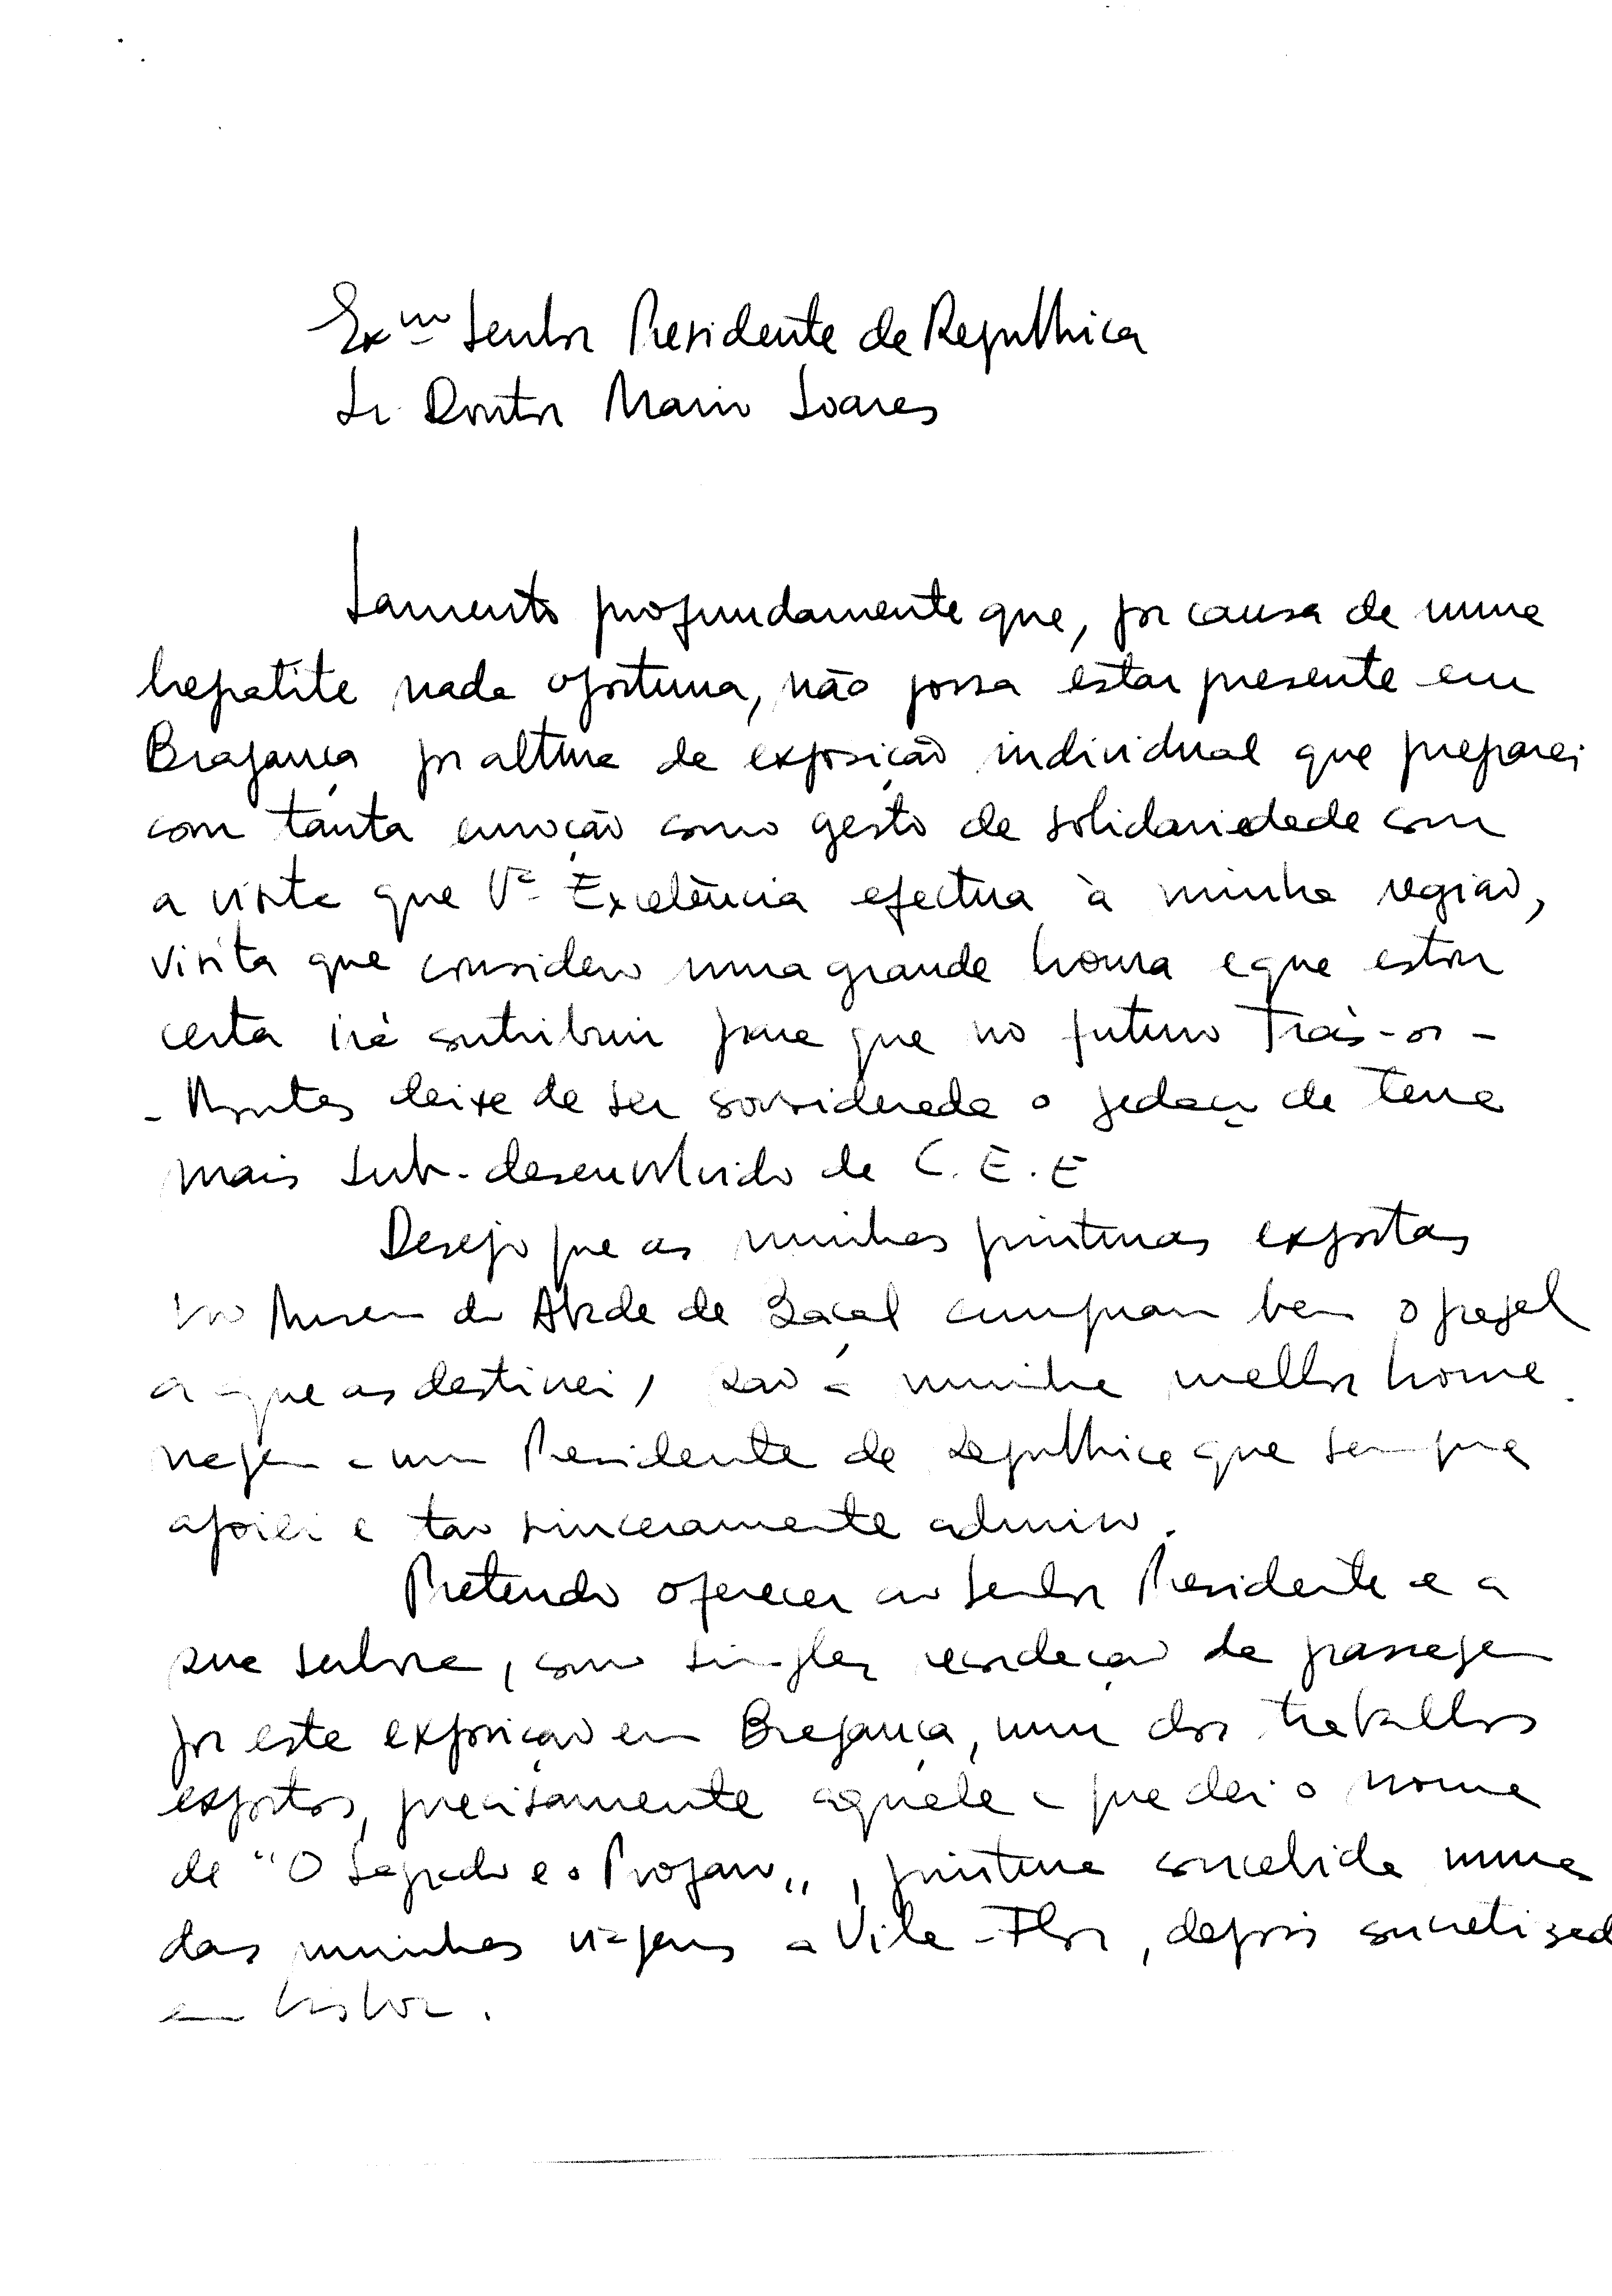 Exmo Senhor Presidente da Republica
Sr. Doutor Mario Soares
Lamento profundamente que, por causa de uma
hepatite nada oportuna, não possa estar presente em
Bragança por altura da exposição individual que preparei
com tanta emoção como gesto de solidariedade com
a visita que Vª Exelência efectua à minha região,
visita que considero uma grande honra e que estou
certa irá contribuir para que no futuro Trás-os-
-Montes deixe de ser considerada o pedaço de terra
mais sub-desenvolvido da C.E.E
Desejo que as minhas pinturas expostas
no Museu do Abade de Baçal cumpram bem o papel
a que as destinei, são a minha melhor home
nagem a um Presidente da Republica que sempre
apoiei e tao sinceramente admiro.
Pretendo oferecer ao Senhor Presidente e a
sua senhora, como simples recordação da passagem
por esta exposição em Bragança, um dos trabalhos
expostos, precisamente aquele a que dei o nome
de "O Sagrado e o Profano", pintura concebida numa
das minhas viagens a Vila-Flor, depois concretizad
em Lisboa.